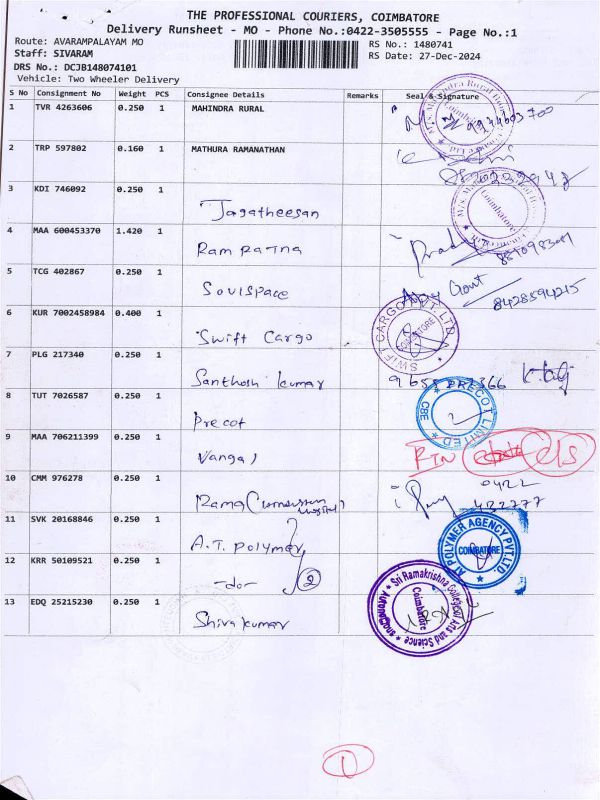 THE PROFESSIONAL COURIERS, COIMBATORE
Delivery Runsheet - MO - Phone No.:0422-3505555 - Page No.:1
Route: AVARAMPALAYAM MO RS No.: 1480741
Staff: SIVARAM RS Date: 27-Dec-2024
DRS No.: DCJB148074101
Vehicle: Two Wheeler Delivery
S No Consignment No Weight PCS Consignee Details Remarks Seal & Signature
1 TVR 4263606 0.250 1 MAHINDRA RURAL
2 TRP 597802 0.160 1 MATHURA RAMANATHAN
3 KDI 746092 0.250 1 Jagatheesan
4 MAA 600453370 1.420 1 Ram Ratna
5 TCG 402867 0.250 1 Soulspace 8428594215
6 KUR 7002458984 0.400 1 Swift Cargo SWIFT CARGO PVT. LTD. COIMBATORE
7 PLG 217340 0.250 1 Santhosh kumar
8 TUT 7026587 0.250 1 Precot PRECOT LIMITED CBE
9 MAA 706211399 0.250 1
10 CMM 976278 0.250 1 Rama
11 SVK 20168846 0.250 1 A.T. Polymer AT POLYMER AGENCY PVT. LTD. COIMBATORE
12 KRR 50109521 0.250 1 -do- 2
13 EDQ 25215230 0.250 1 Shiva kumar Sri Ramakrishna College of Arts and Science Coimbatore
1